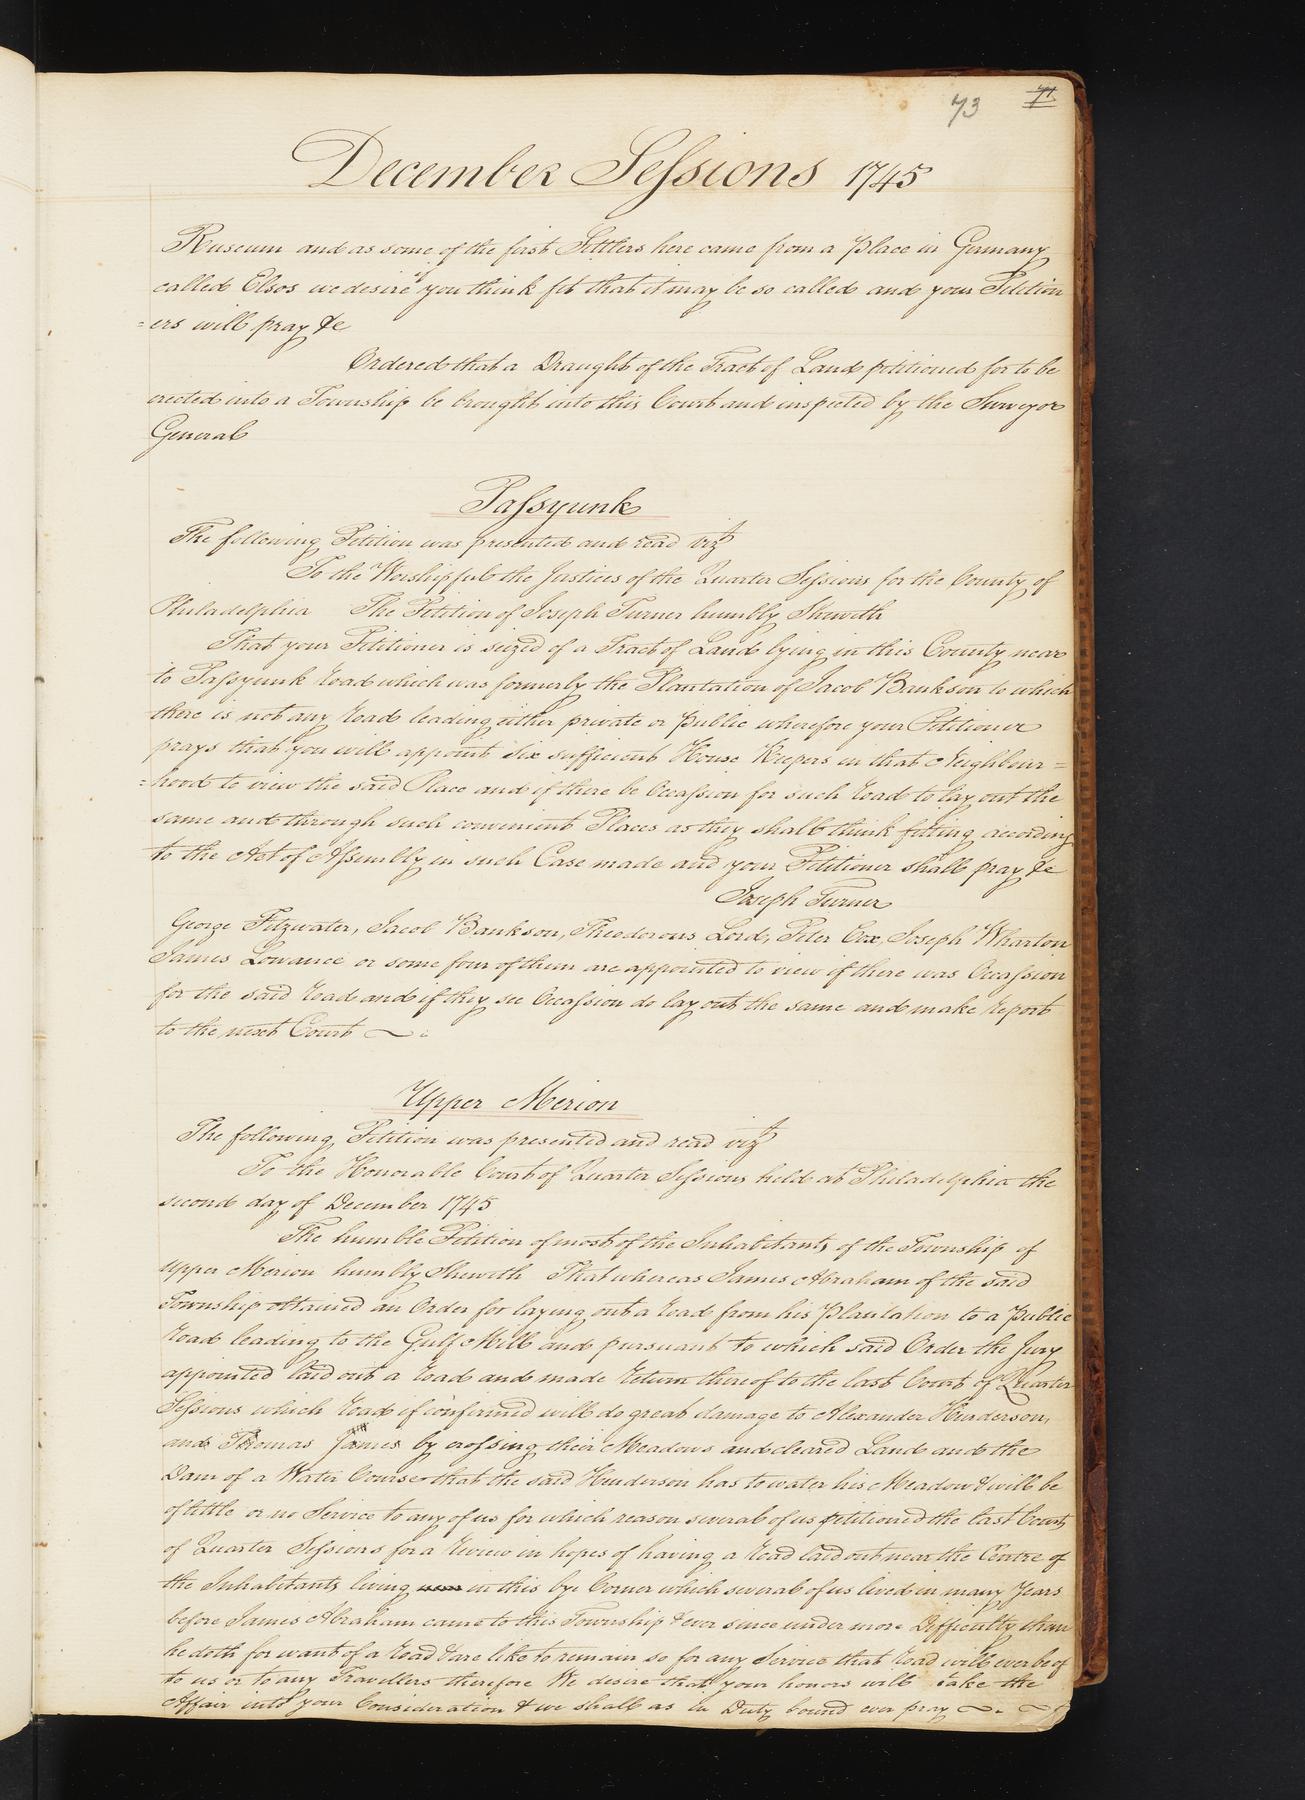 73 71
December Sessions 1745
Ruscum and as some of the first Settlers here came from a Place in Germany
called Elsos we desire if you think fit that it may be so called and your Petition
=ers will pray &c
Ordered that a Draught of the Tract of Land petitioned for to be
erected into a Township be brought into this Court and inspected by the Surveyor
General
Passyunk
The following Petition was presented and read vizt
To the Worshipful the Justices of the Quarter Sessions for the County of
Philadelphia The Petition of Joseph Turner humbly Sheweth
That your Petitioner is seized of a Tract of Land lying in this County near
to Passyunk Road which was formerly the Plantation of Jacob Bankson to which
there is not any Road leading either private or Public wherefore your Petitioner
prays that you will appoint Six sufficient House Keepers in that Neighbour=
=hood to view the said Place and if there be Occassion for such Road to lay out the
same and through such convenient Places as they shall think fitting according
to the Act of Assembly in such Case made and your Petitioner shall pray &c
Joseph Turner
George Fitzwater, Jacob Bankson, Theodorous Lord, Peter Cox, Joseph Wharton
James Lowance or some four of them are appointed to view if there was Occassion
for the said Road and if they see Occassion do lay out the same and make Report
to the next Court
Upper Merion
The following Petition was presented and read vizt
To the Honorable Court of Quarter Sessions held at Philadelphia the
second day of December 1745
The humble Petition of most of the Inhabitants of the Township of
Upper Merion humbly Sheweth That whereas James Abraham of the said
Township obtained an Order for laying out a Road from his Plantation to a Public
Road leading to the Gulf Mill and pursuant to which said Order the Jury
appointed laid out a Road and made Return thereof to the last Court of Quarter
Sessions which Road if confirmed will do great damage to Alexander Henderson,
and Thomas James by crossing their Meadows and cleared Land and the
Dam of a Water Course that the said Henderson has to water his Meadow & will be
of little or no Service to any of us for which reason several of us petitioned the last Court
of Quarter Sessions for a Review in hopes of having a Road laid out near the Centre of
the Inhabitants living in this bye Corner which several of us lived in many Years
before James Abraham came to this Township & ever since under more Difficulty than
he doth for want of a Road & are like to remain so for any Service that Road will ever be of
to us or to any Travellers therefore We desire that your honors will take the
Affair into your Consideration & we shall as in Duty bound ever pray